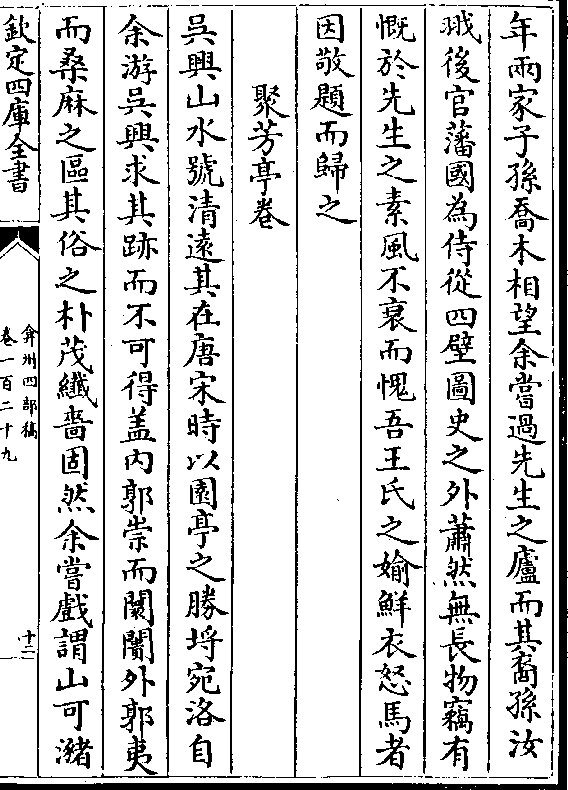 年兩家子孫喬木相望余嘗過先生之廬而其裔孫汝
珴後官藩國為侍從四壁圖史之外蕭然無長物竊有
慨於先生之素風不衰而愧吾王氏之媮鮮衣怒馬者
因敬題而歸之
聚芳亭卷
吳興山水號清遠其在唐宋時以園亭之勝埒宛洛自
余游吳興求其跡而不可得盖内郭崇而闤闠外郭夷
而桑麻之區其俗之朴茂纖嗇固然余嘗戲謂山可瀦
欽定四庫全書
弇州四部稿
卷一百二十九
十二